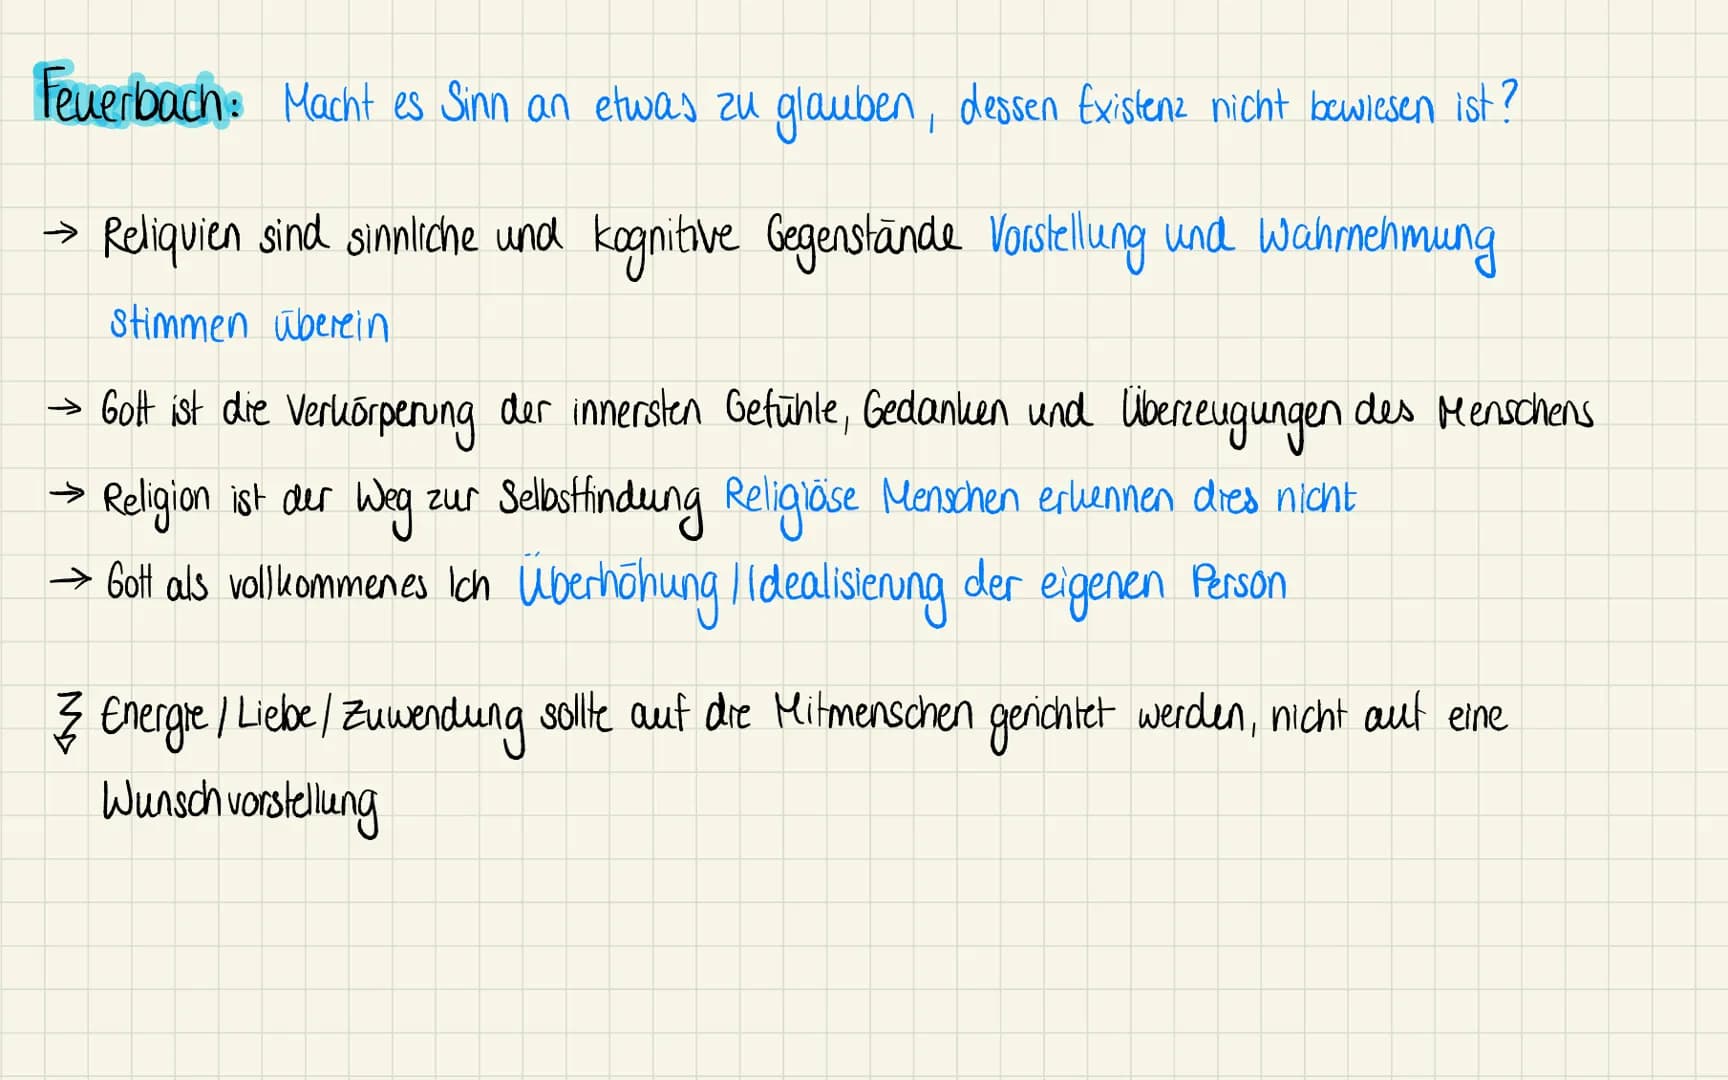 Feuerbach: Macht es Sinn an etwas zu glauben, dessen Existenz nicht bewiesen ist?
→ Reliquien sind sinnliche und kognitive Gegenstände Vorstellung und Wahrnehmung
stimmen überein
→ Gott ist die Verkörperung der innersten Gefühle, Gedanken und Überzeugungen des Menschens
→ Religion ist der Weg zur Selbstfindung Religiöse Menschen erkennen dies nicht
→ Gott als vollkommenes Ich Überhöhung/Idealisierung der eigenen Person
Energie/Liebe/Zuwendung sollte auf die Mitmenschen gerichtet werden, nicht auf eine
Wunschvorstellung